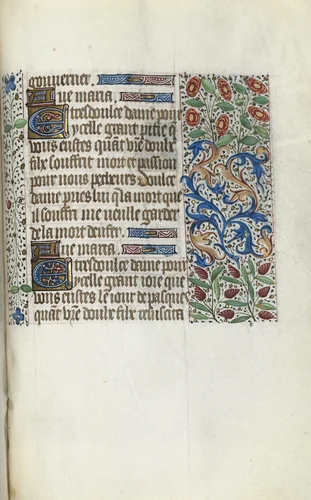 gouverner.
Aue maria.
E tresdoulce dame pour
ycelle grant pitie q̃
vous eustes quãt vr̃e doulz
filz souffrit mort et passion
pour nous pecheurs Doulce
dame pries lui q̃ la mort que
il souffri me veille garder
de la mort denfer.
Aue maria.
E tresdoulce dame pour
ycelle grant ioie que
vous eustes le iour de pasques
quãt vr̃e doulz filz resuscita